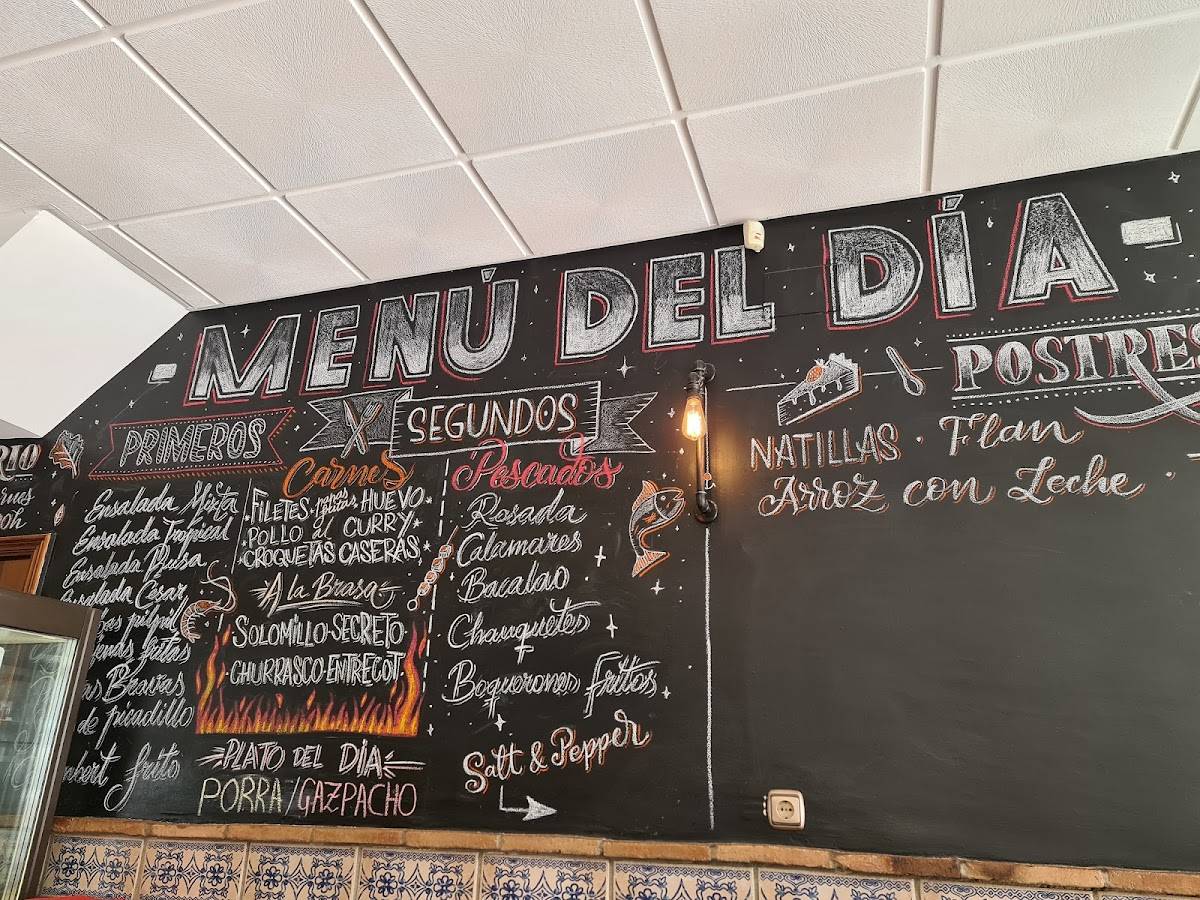 MENÚ DEL DÍA
PRIMEROS
Ensalada Mixta
Ensalada Tropical
Ensalada Rusa
Ensalada Cesar
pilpil
fritas
Bravas
de picadillo
frito
SEGUNDOS
Carnes
FILETES papas fritas HUEVO
POLLO al CURRY
CROQUETAS CASERAS
A la Brasa
SOLOMILLO·SECRETO
CHURRASCO·ENTRECOT
PLATO DEL DÍA
PORRA/GAZPACHO
Pescados
Rosada
Calamares
Bacalao
Chanquetes
Boquerones fritos
Salt & Pepper
POSTRES
NATILLAS · Flan
Arroz con Leche